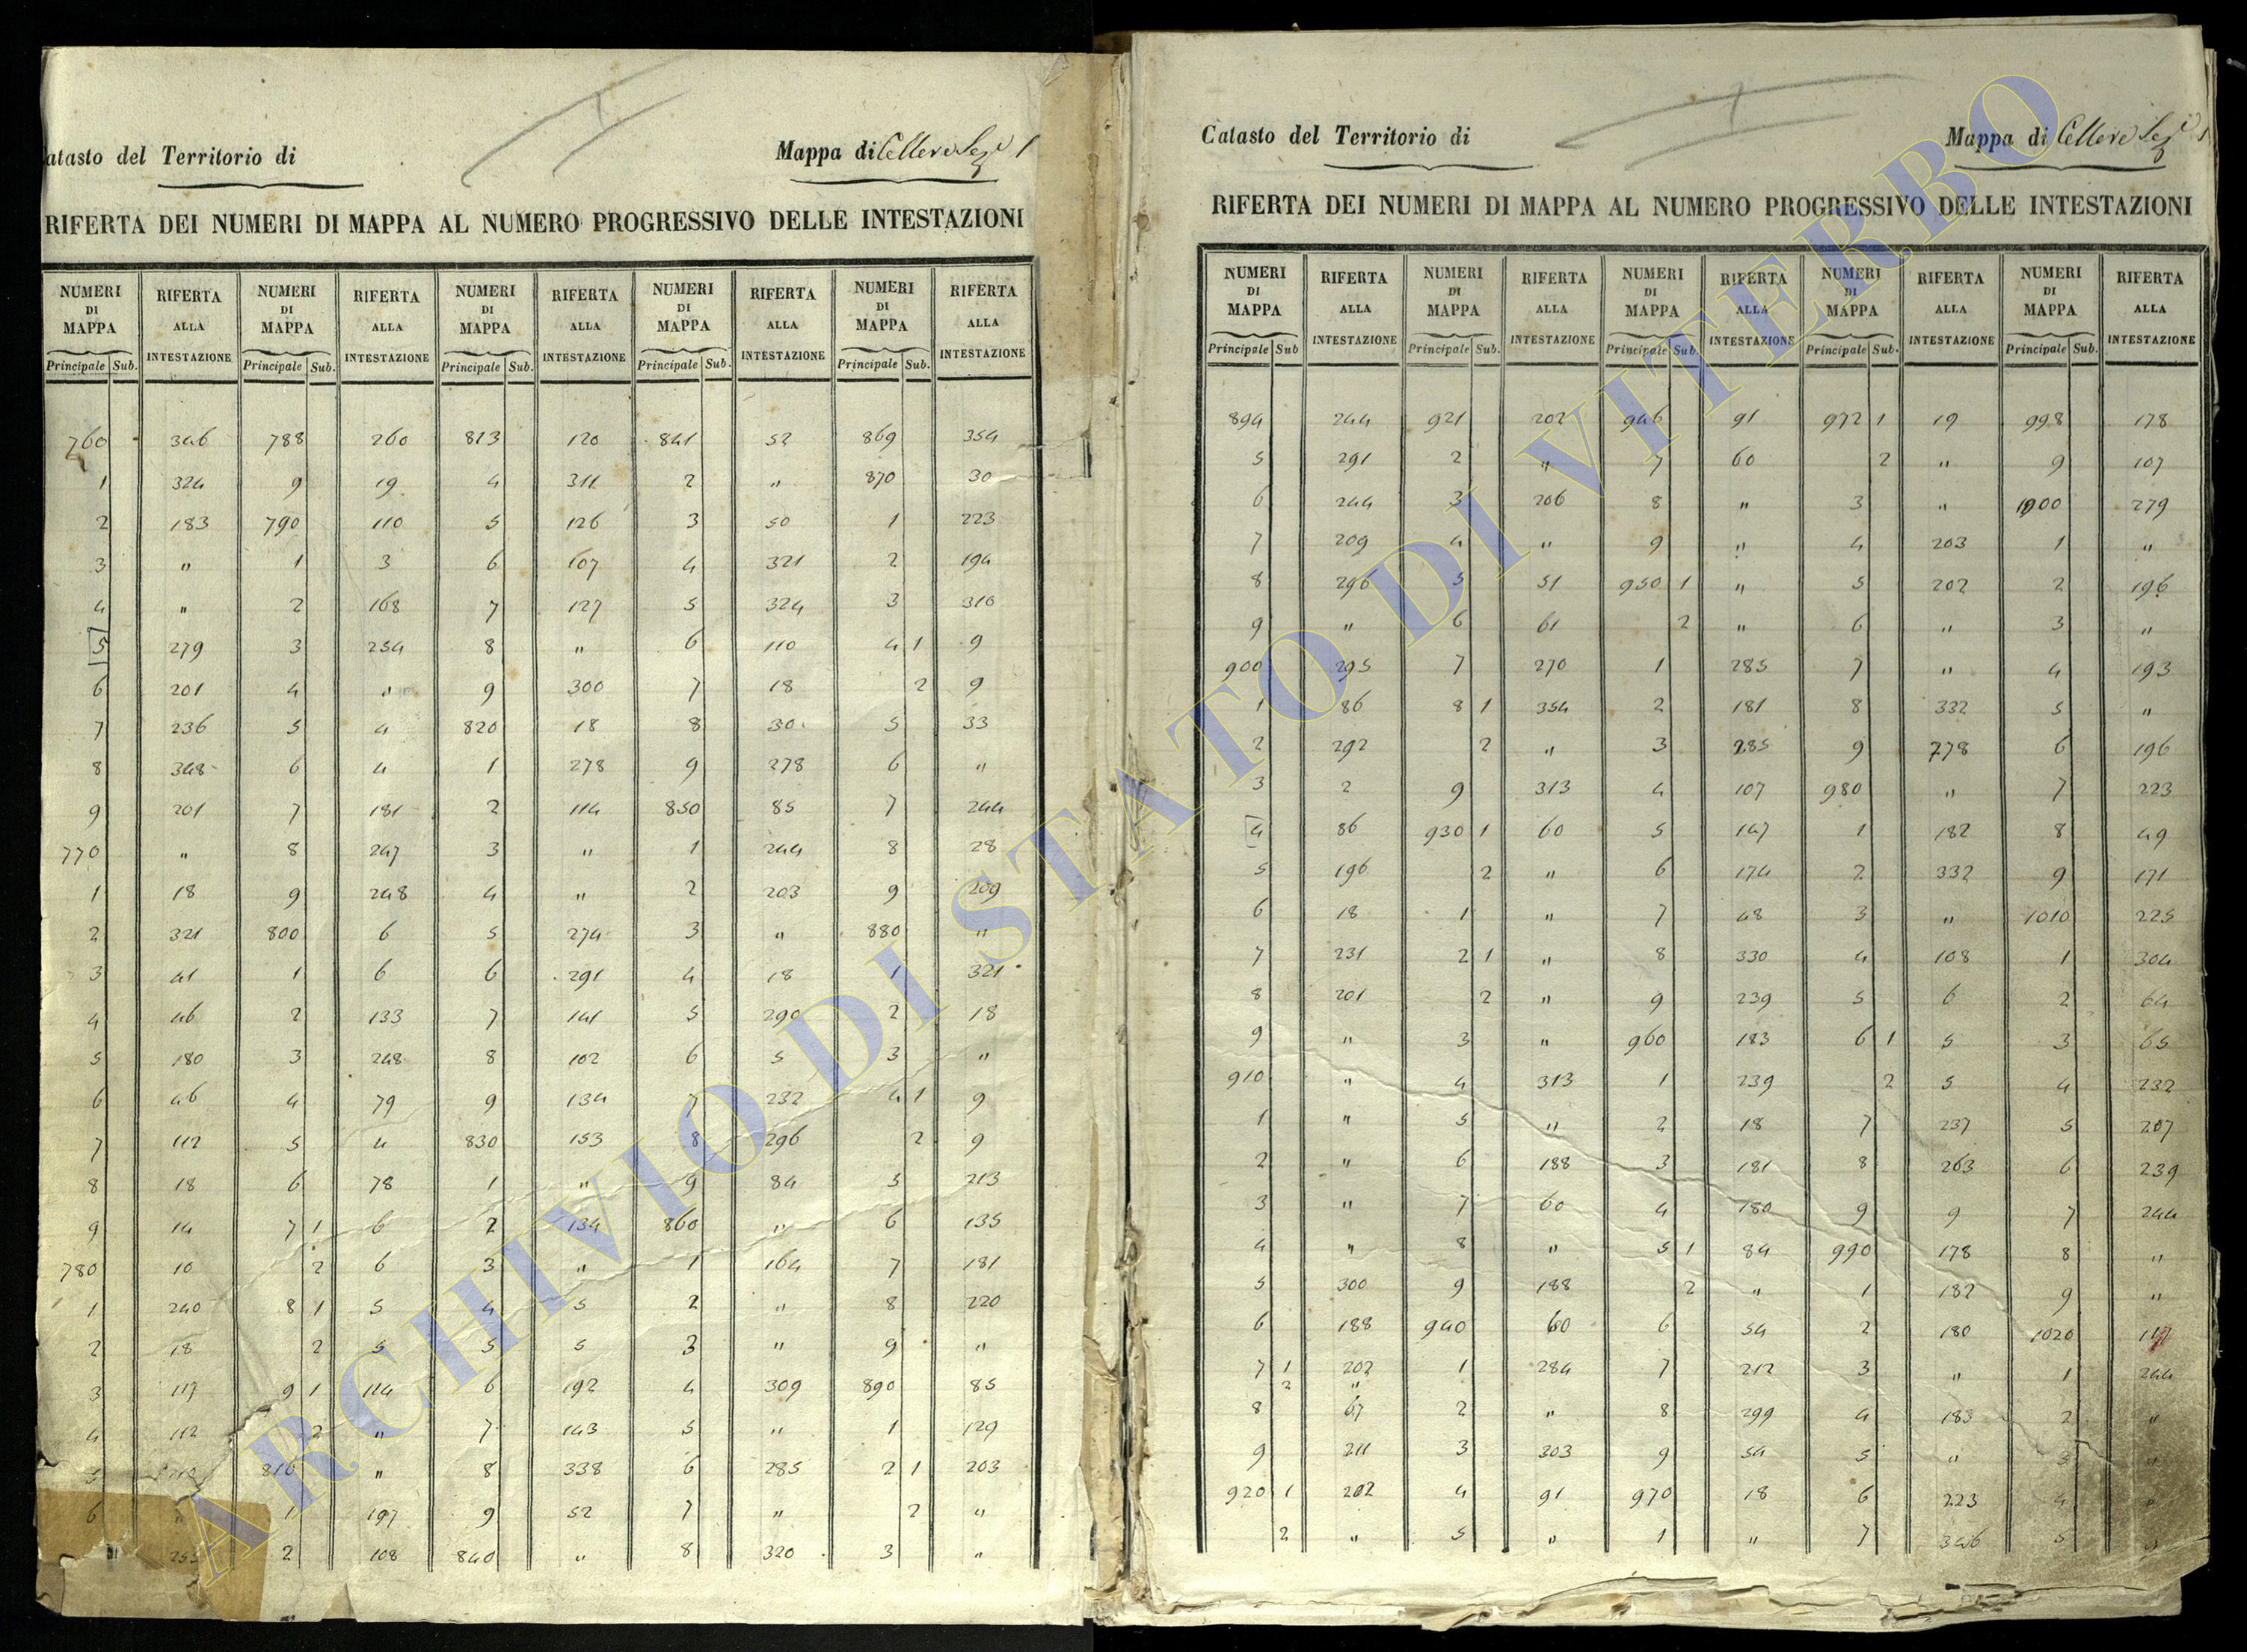 atasto del Territorio di
Mappa di Cellere Sez.e 1
RIFERTA DEI NUMERI DI MAPPA AL NUMERO PROGRESSIVO DELLE INTESTAZIONI
NUMERI DI MAPPA RIFERTA ALLA INTESTAZIONE NUMERI DI MAPPA RIFERTA ALLA INTESTAZIONE NUMERI DI MAPPA RIFERTA ALLA INTESTAZIONE NUMERI DI MAPPA RIFERTA ALLA INTESTAZIONE NUMERI DI MAPPA RIFERTA ALLA INTESTAZIONE
Principale Sub. Principale Sub. Principale Sub. Principale Sub. Principale Sub.
760 346 788 260 813 120 841 52 869 354
1 324 9 19 4 311 2 " 870 30
2 183 790 110 5 126 3 50 1 223
3 " 1 3 6 107 4 321 2 194
4 " 2 168 7 127 5 324 3 316
5 279 3 254 8 " 6 110 4 1 9
6 201 4 " 9 300 7 18 2 9
7 236 5 4 820 18 8 30 5 33
8 348 6 4 1 278 9 278 6 "
9 201 7 181 2 114 850 85 7 244
770 " 8 247 3 " 1 244 8 28
1 18 9 248 4 " 2 203 9 209
2 321 800 6 5 274 3 " 880 "
3 41 1 6 6 291 4 18 1 321
4 46 2 133 7 141 5 290 2 18
5 180 3 248 8 102 6 5 3 "
6 46 4 79 9 134 7 232 4 1 9
7 112 5 4 830 153 8 296 2 9
8 18 6 78 1 " 9 84 5 213
9 14 7 1 6 2 134 860 " 6 135
780 10 2 6 3 " 1 164 7 181
1 240 8 1 5 4 5 2 " 8 220
2 18 2 5 5 5 3 " 9 "
3 117 9 1 114 6 192 4 309 890 85
4 112 2 " 7 143 5 " 1 129
5 810 " 8 338 6 285 2 1 203
6 1 197 9 52 7 " 2 "
2 108 840 " 8 320 3 "
Catasto del Territorio di
Mappa di Cellere Sez.e 1
RIFERTA DEI NUMERI DI MAPPA AL NUMERO PROGRESSIVO DELLE INTESTAZIONI
NUMERI DI MAPPA RIFERTA ALLA INTESTAZIONE NUMERI DI MAPPA RIFERTA ALLA INTESTAZIONE NUMERI DI MAPPA RIFERTA ALLA INTESTAZIONE NUMERI DI MAPPA RIFERTA ALLA INTESTAZIONE NUMERI DI MAPPA RIFERTA ALLA INTESTAZIONE
Principale Sub Principale Sub. Principale Sub. Principale Sub. Principale Sub.
894 244 921 202 946 91 972 1 19 998 178
5 291 2 " 7 60 2 " 9 107
6 244 3 206 8 " 3 " 1000 279
7 209 4 " 9 " 4 203 1 "
8 296 5 51 950 1 " 5 202 2 196
9 " 6 61 2 " 6 " 3 "
900 295 7 270 1 285 7 " 4 193
1 86 8 1 354 2 181 8 332 5 "
2 292 2 " 3 285 9 278 6 196
3 2 9 313 4 107 980 " 7 223
4 86 930 1 60 5 147 1 182 8 49
5 196 2 " 6 174 2 332 9 171
6 18 1 " 7 48 3 " 1010 225
7 231 2 1 " 8 330 4 108 1 304
8 201 2 " 9 239 5 6 2 64
9 " 3 " 960 183 6 1 5 3 65
910 " 4 313 1 239 2 5 4 232
1 " 5 " 2 18 7 237 5 207
2 " 6 188 3 181 8 263 6 239
3 " 7 60 4 180 9 9 7 244
4 " 8 " 5 1 84 990 178 8 "
5 300 9 188 2 " 1 182 9 "
6 188 940 60 6 54 2 180 1020
7 1 202 1 284 7 212 3 " 1 244
2 "
8 67 2 " 8 299 4 183 2 "
9 211 3 303 9 54 5 " 3 "
920 1 202 4 91 970 18 6 223 4 "
2 " 5 " 1 " 7 346 5 "
ARCHIVIO DI STATO DI VITERBO